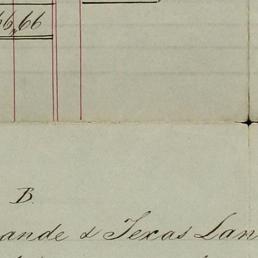 66,66
B.
ande & Texas Lan